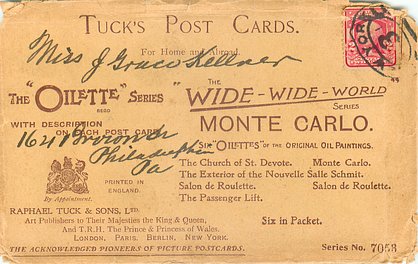 TUCK'S POST CARDS.
For Home and Abroad.
Miss J Grace Kellner
THE "OILETTE" SERIES
REGD
THE
"WIDE-WIDE-WORLD
SERIES
WITH DESCRIPTION
ON EACH POST CARD
MONTE CARLO.
SIX "OILETTES" OF THE ORIGINAL OIL PAINTINGS.
1621 Brown
Philadelphia
Pa
The Church of St. Devote. Monte Carlo.
The Exterior of the Nouvelle Salle Schmit.
Salon de Roulette. Salon de Roulette.
The Passenger Lift.
By Appointment.
PRINTED IN
ENGLAND.
RAPHAEL TUCK & SONS, LTD.
Art Publishers to Their Majesties the King & Queen,
And T.R.H. The Prince & Princess of Wales.
LONDON, PARIS, BERLIN, NEW YORK.
Six in Packet.
THE ACKNOWLEDGED PIONEERS OF PICTURE POSTCARDS.
Series No. 7053